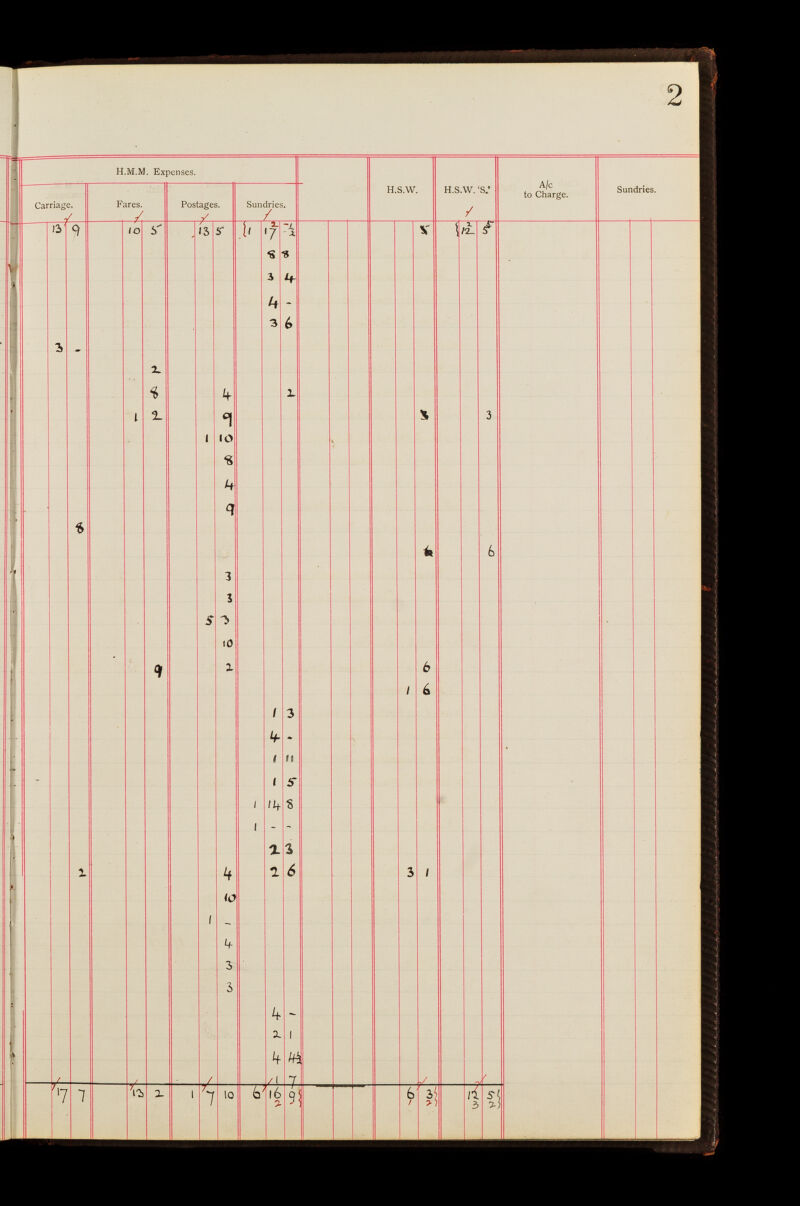 2
H.M.M. Expenses.
Carriage. Fares. Postages. Sundries. H.S.W. H.S.W. 'S.' A/c to Charge. Sundries.
13 9 10 5 13 5 1 17 12 5
8 8
3 4
4 -
3 6
3 -
2
8 4 2
1 2 9 3
1 10
8
4
9
8
6
3
3
5 3
10
9 2 6
1 6
1 3
4 -
1 11
1 5
1 14 8
1 - -
2 3
2 4 2 6 3 1
10
1 -
4
3
3
4 -
2 1
4 4½
1 7
17 7 13 2 1 7 10 6 16 9 6 3 12 5
2 7 2 3 2